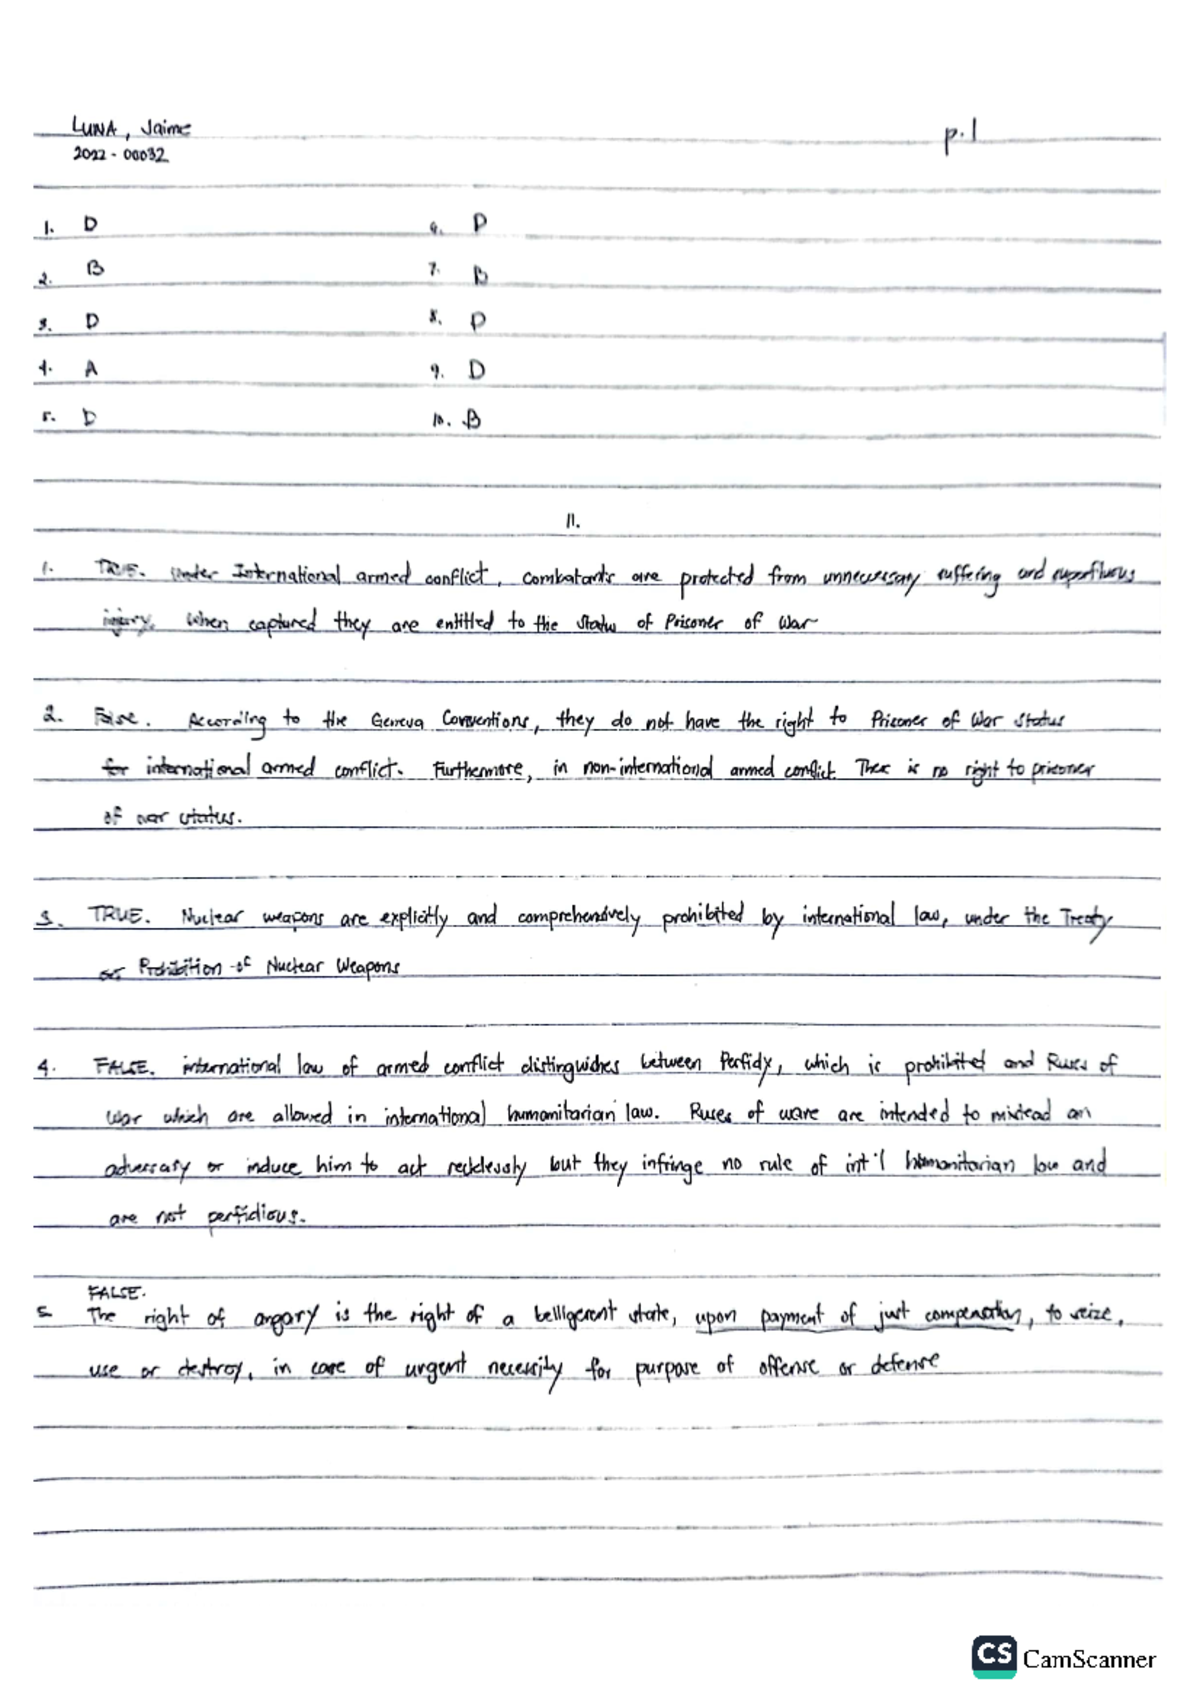 LUNA, Jaime
p.1
2022-00032
1. D
6. D
2. B
7. B
3. D
8. D
4. A
9. D
5. D
10. B
II.
1. TRUE. Under International armed conflict, combatants are protected from unnecessary suffering and superfluous
injury. When captured they are entitled to the status of Prisoner of War
2. False. According to the Geneva Conventions, they do not have the right to Prisoner of War status
for international armed conflict. Furthermore, in non-international armed conflict. There is no right to prisoner
of war status.
3. TRUE. Nuclear weapons are explicitly and comprehensively prohibited by international law, under the Treaty
Prohibition of Nuclear Weapons
4. FALSE. international law of armed conflict distinguishes between Perfidy, which is prohibited and Ruses of
War which are allowed in international humanitarian law. Ruses of ware are intended to mislead an
adversary or induce him to act recklessly but they infringe no rule of int'l humanitarian law and
are not perfidious.
FALSE.
5. The right of angary is the right of a belligerent state, upon payment of just compensation, to seize,
use or destroy, in case of urgent necessity for purpose of offense or defense
CS CamScanner